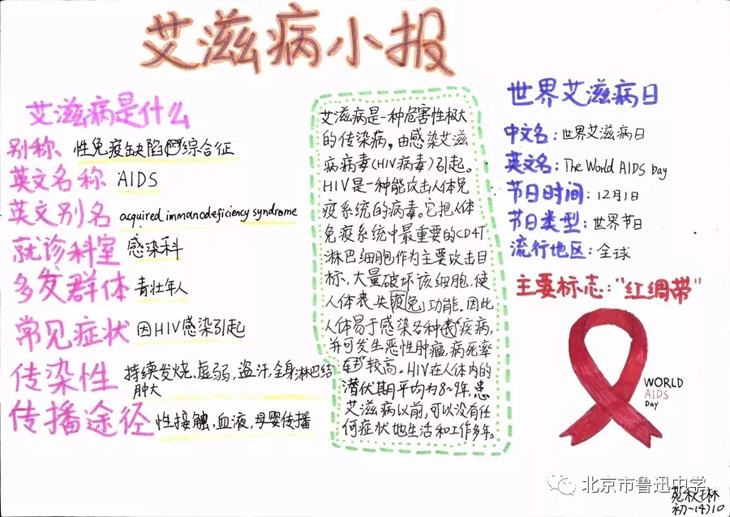 艾滋病小报
艾滋病是什么
别称、性免疫缺陷综合征
英文名称 AIDS
英文别名 acquired immunodeficiency syndrome
就诊科室 感染科
多发群体 青壮年人
常见症状 因HIV感染引起
传染性 持续发烧,虚弱,盗汗,全身淋巴结
肿大
传播途径 性接触,血液,母婴传播
艾滋病是一种危害性极大
的传染病,由感染艾滋
病病毒(HIV病毒)引起。
HIV是一种能攻击人体免
疫系统的病毒。它把人体
免疫系统中最重要的CD4T
淋巴细胞作为主要攻击目
标,大量破坏该细胞,使
人体丧失免疫功能。因此
人体易于感染各种疾病,
并可发生恶性肿瘤,病死率
较高。HIV在人体内的
潜伏期平均为8~9年,患
艾滋病以前,可以没有任
何症状地生活和工作多年。
世界艾滋病日
中文名:世界艾滋病日
英文名:The World AIDS Day
节日时间:12月1日
节日类型:世界节日
流行地区:全球
主要标志:"红绸带"
WORLD
AIDS
Day
北京市鲁迅中学
初一(4)10